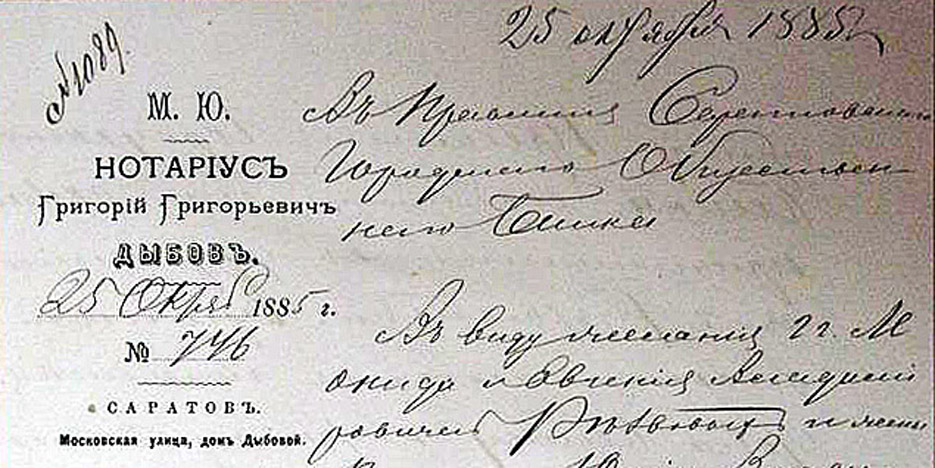 25 октября 1885 г.
№1089.
М. Ю.
НОТАРІУСЪ
Григорій Григорьевичъ
ДЫБОВЪ.
25 Октяб 1885 г.
№ 746
САРАТОВЪ.
Московская улица, домъ Дыбовой.
Въ Правленія Саратовскаго
Городского Обществен-
наго Банка
Въ виду желанія г.г.